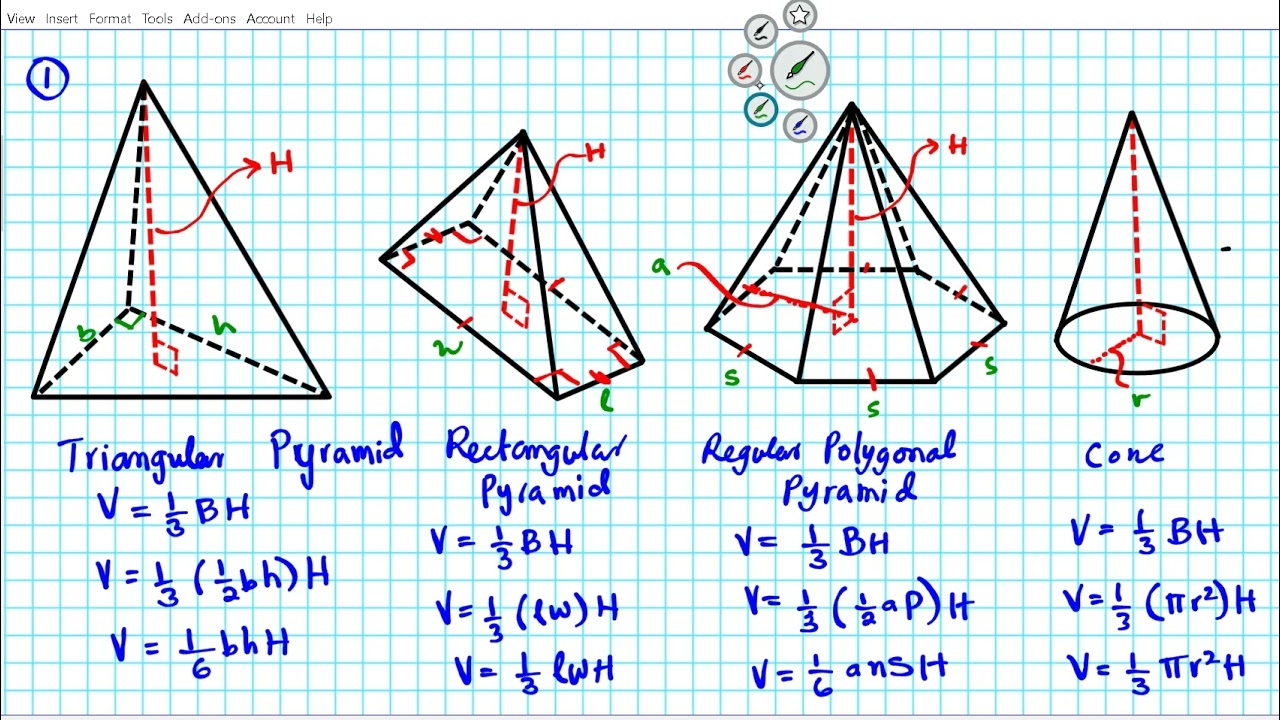 View Insert Format Tools Add-ons Account Help
1
H
b
h
Triangular Pyramid
V = 1/3 BH
V = 1/3 (1/2 bh) H
V = 1/6 bhH
H
w
l
Rectangular
Pyramid
V = 1/3 BH
V = 1/3 (lw) H
V = 1/3 lwH
H
a
s
s
s
Regular Polygonal
Pyramid
V = 1/3 BH
V = 1/3 (1/2 aP) H
V = 1/6 ansH
r
Cone
V = 1/3 BH
V = 1/3 (πr²) H
V = 1/3 πr²H